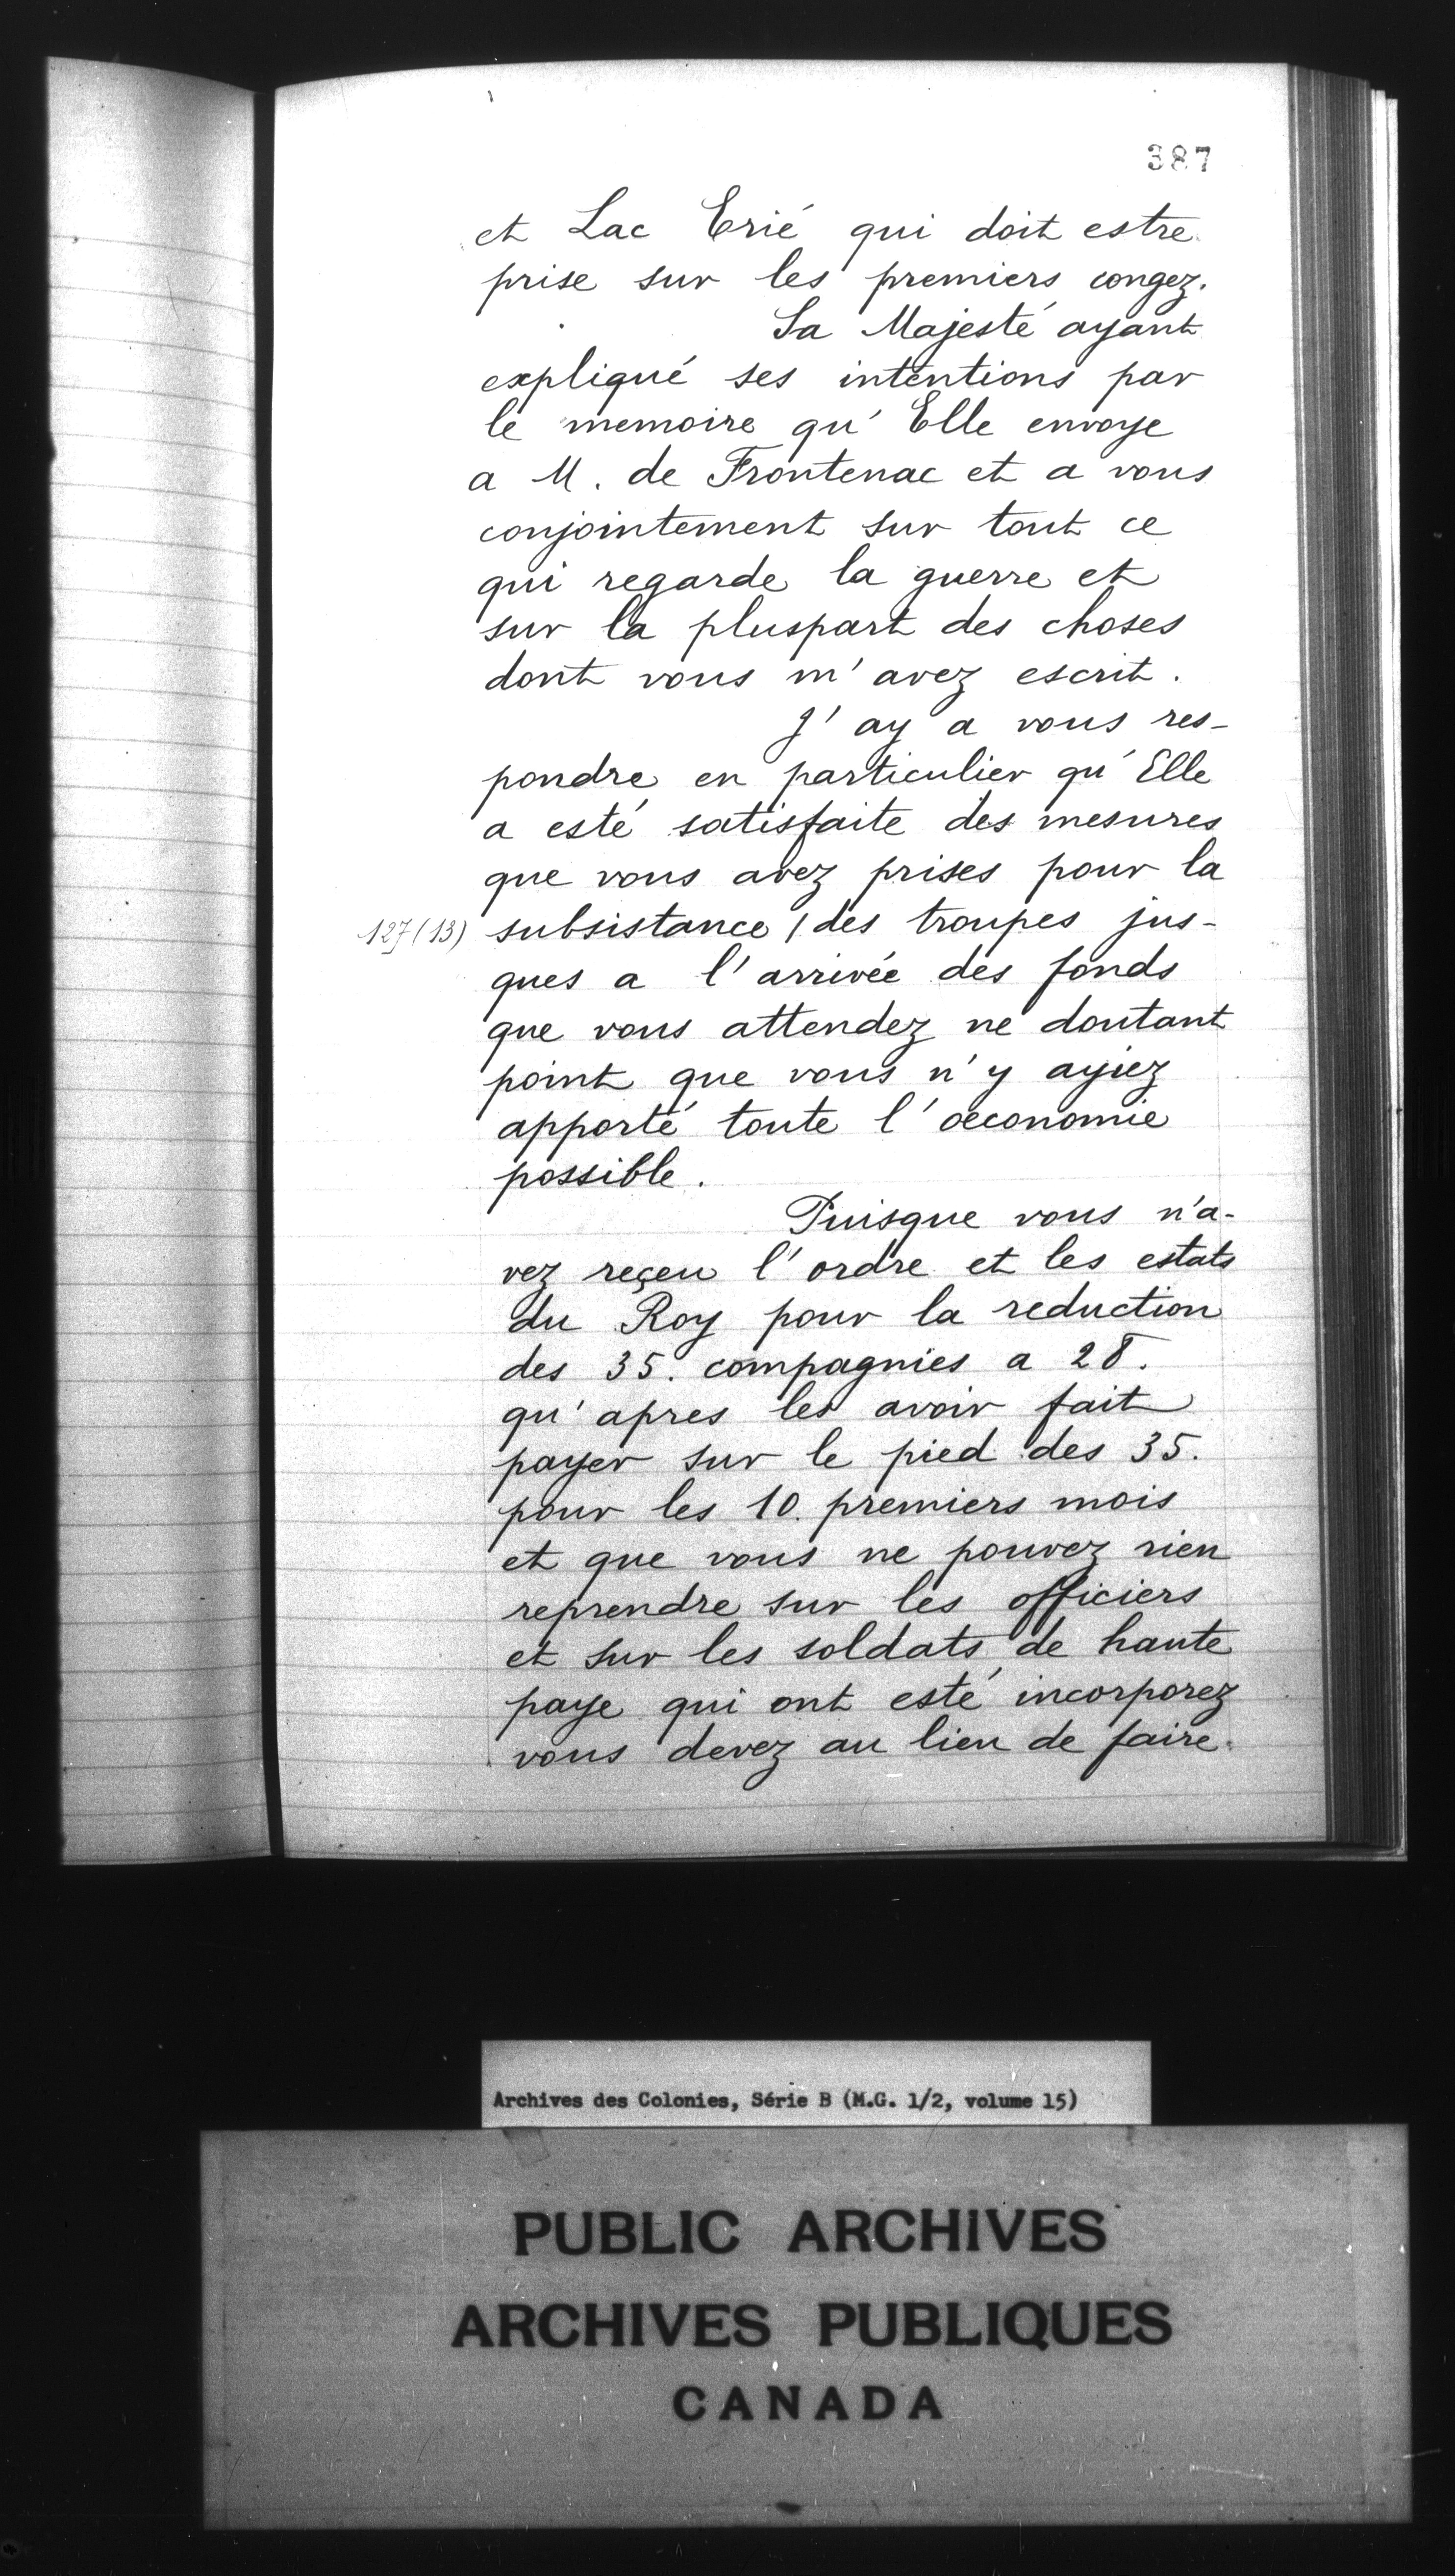 387
et Lac Erié qui doit estre
prise sur les premiers congez.
Sa Majesté ayant
expliqué ses intentions par
le memoire qu'Elle envoye
a M. de Frontenac et a vous
conjointement sur tout ce
qui regarde la guerre et
sur la pluspart des choses
dont vous m'avez escrit.
J'ay a vous res-
pondre en particulier qu'Elle
a esté satisfaite des mesures
que vous avez prises pour la
127 (13) subsistance / des troupes jus-
ques a l'arrivée des fonds
que vous attendez ne doutant
point que vous n'y ayiez
apporté toute l'œconomie
possible.
Puisque vous n'a-
vez reçeu l'ordre et les estats
du Roy pour la reduction
des 35. compagnies a 28.
qu'apres les avoir fait
payer sur le pied des 35.
pour les 10. premiers mois
et que vous ne pouvez rien
reprendre sur les officiers
et sur les soldats de haute
paye qui ont esté incorporez
vous devez au lieu de faire
Archives des Colonies, Série B (M.G. 1/2, volume 15)
PUBLIC ARCHIVES
ARCHIVES PUBLIQUES
CANADA